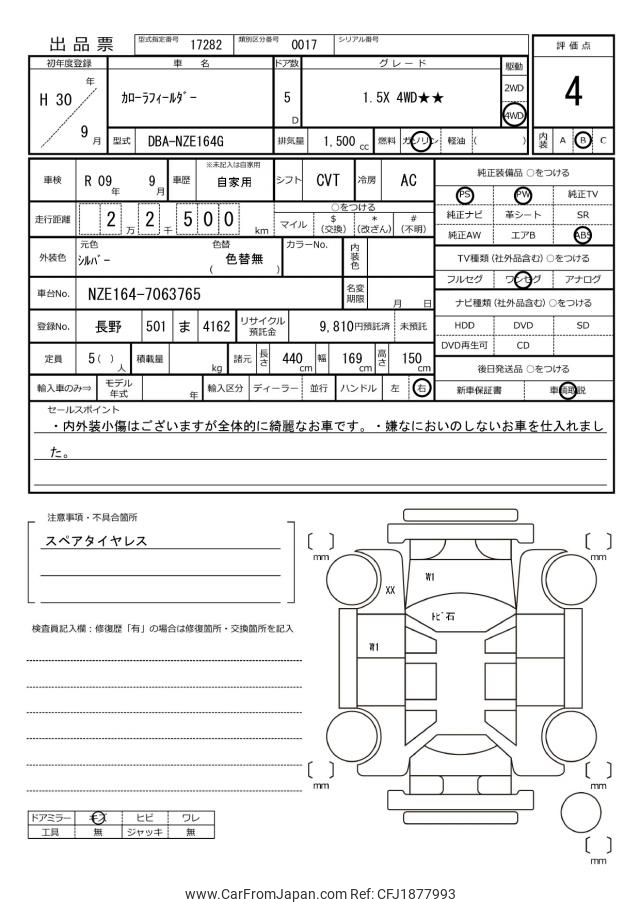 出品票 型式指定番号 17282 類別区分番号 0017 シリアル番号
評価点
4
内装 A B C
初年度登録 車名 ドア数 グレード 駆動
H 30 年 9 月
カローラフィールダー 5 D 1.5X 4WD★★
2WD
4WD
型式 DBA-NZE164G 排気量 1,500 cc 燃料 ガソリン 軽油 ( )
車検 R 09 年 9 月 車歴 ※未記入は自家用 自家用 シフト CVT 冷房 AC
走行距離 2 2 万 千 5 0 0 km
○をつける
マイル $ (交換) * (改ざん) # (不明)
外装色 元色 シルバー 色替 ( 色替無 ) カラーNo. 内装色
車台No. NZE164-7063765 名変期限 月 日
登録No. 長野 501 ま 4162 リサイクル預託金 9,810円預託済 未預託
定員 5 ( ) 人 積載量 kg 諸元 長さ 440 cm 幅 169 cm 高さ 150 cm
輸入車のみ⇒ モデル年式 年 輸入区分 ディーラー 並行 ハンドル 左 右
純正装備品 ○をつける
PS PW 純正TV
純正ナビ 革シート SR
純正AW エアB ABS
TV種類 (社外品含む) ○をつける
フルセグ ワンセグ アナログ
ナビ種類 (社外品含む) ○をつける
HDD DVD SD
DVD再生可 CD
後日発送品 ○をつける
新車保証書 車輌取説
セールスポイント
・内外装小傷はございますが全体的に綺麗なお車です。・嫌なにおいのしないお車を仕入れまし
た。
注意事項・不具合箇所
スペアタイヤレス
検査員記入欄：修復歴「有」の場合は修復箇所・交換箇所を記入
mm
mm
W1
XX
トビ石
W1
mm
mm
mm
ドアミラー キズ ヒビ ワレ
工具 無 ジャッキ 無
www.CarFromJapan.com Ref: CFJ1877993